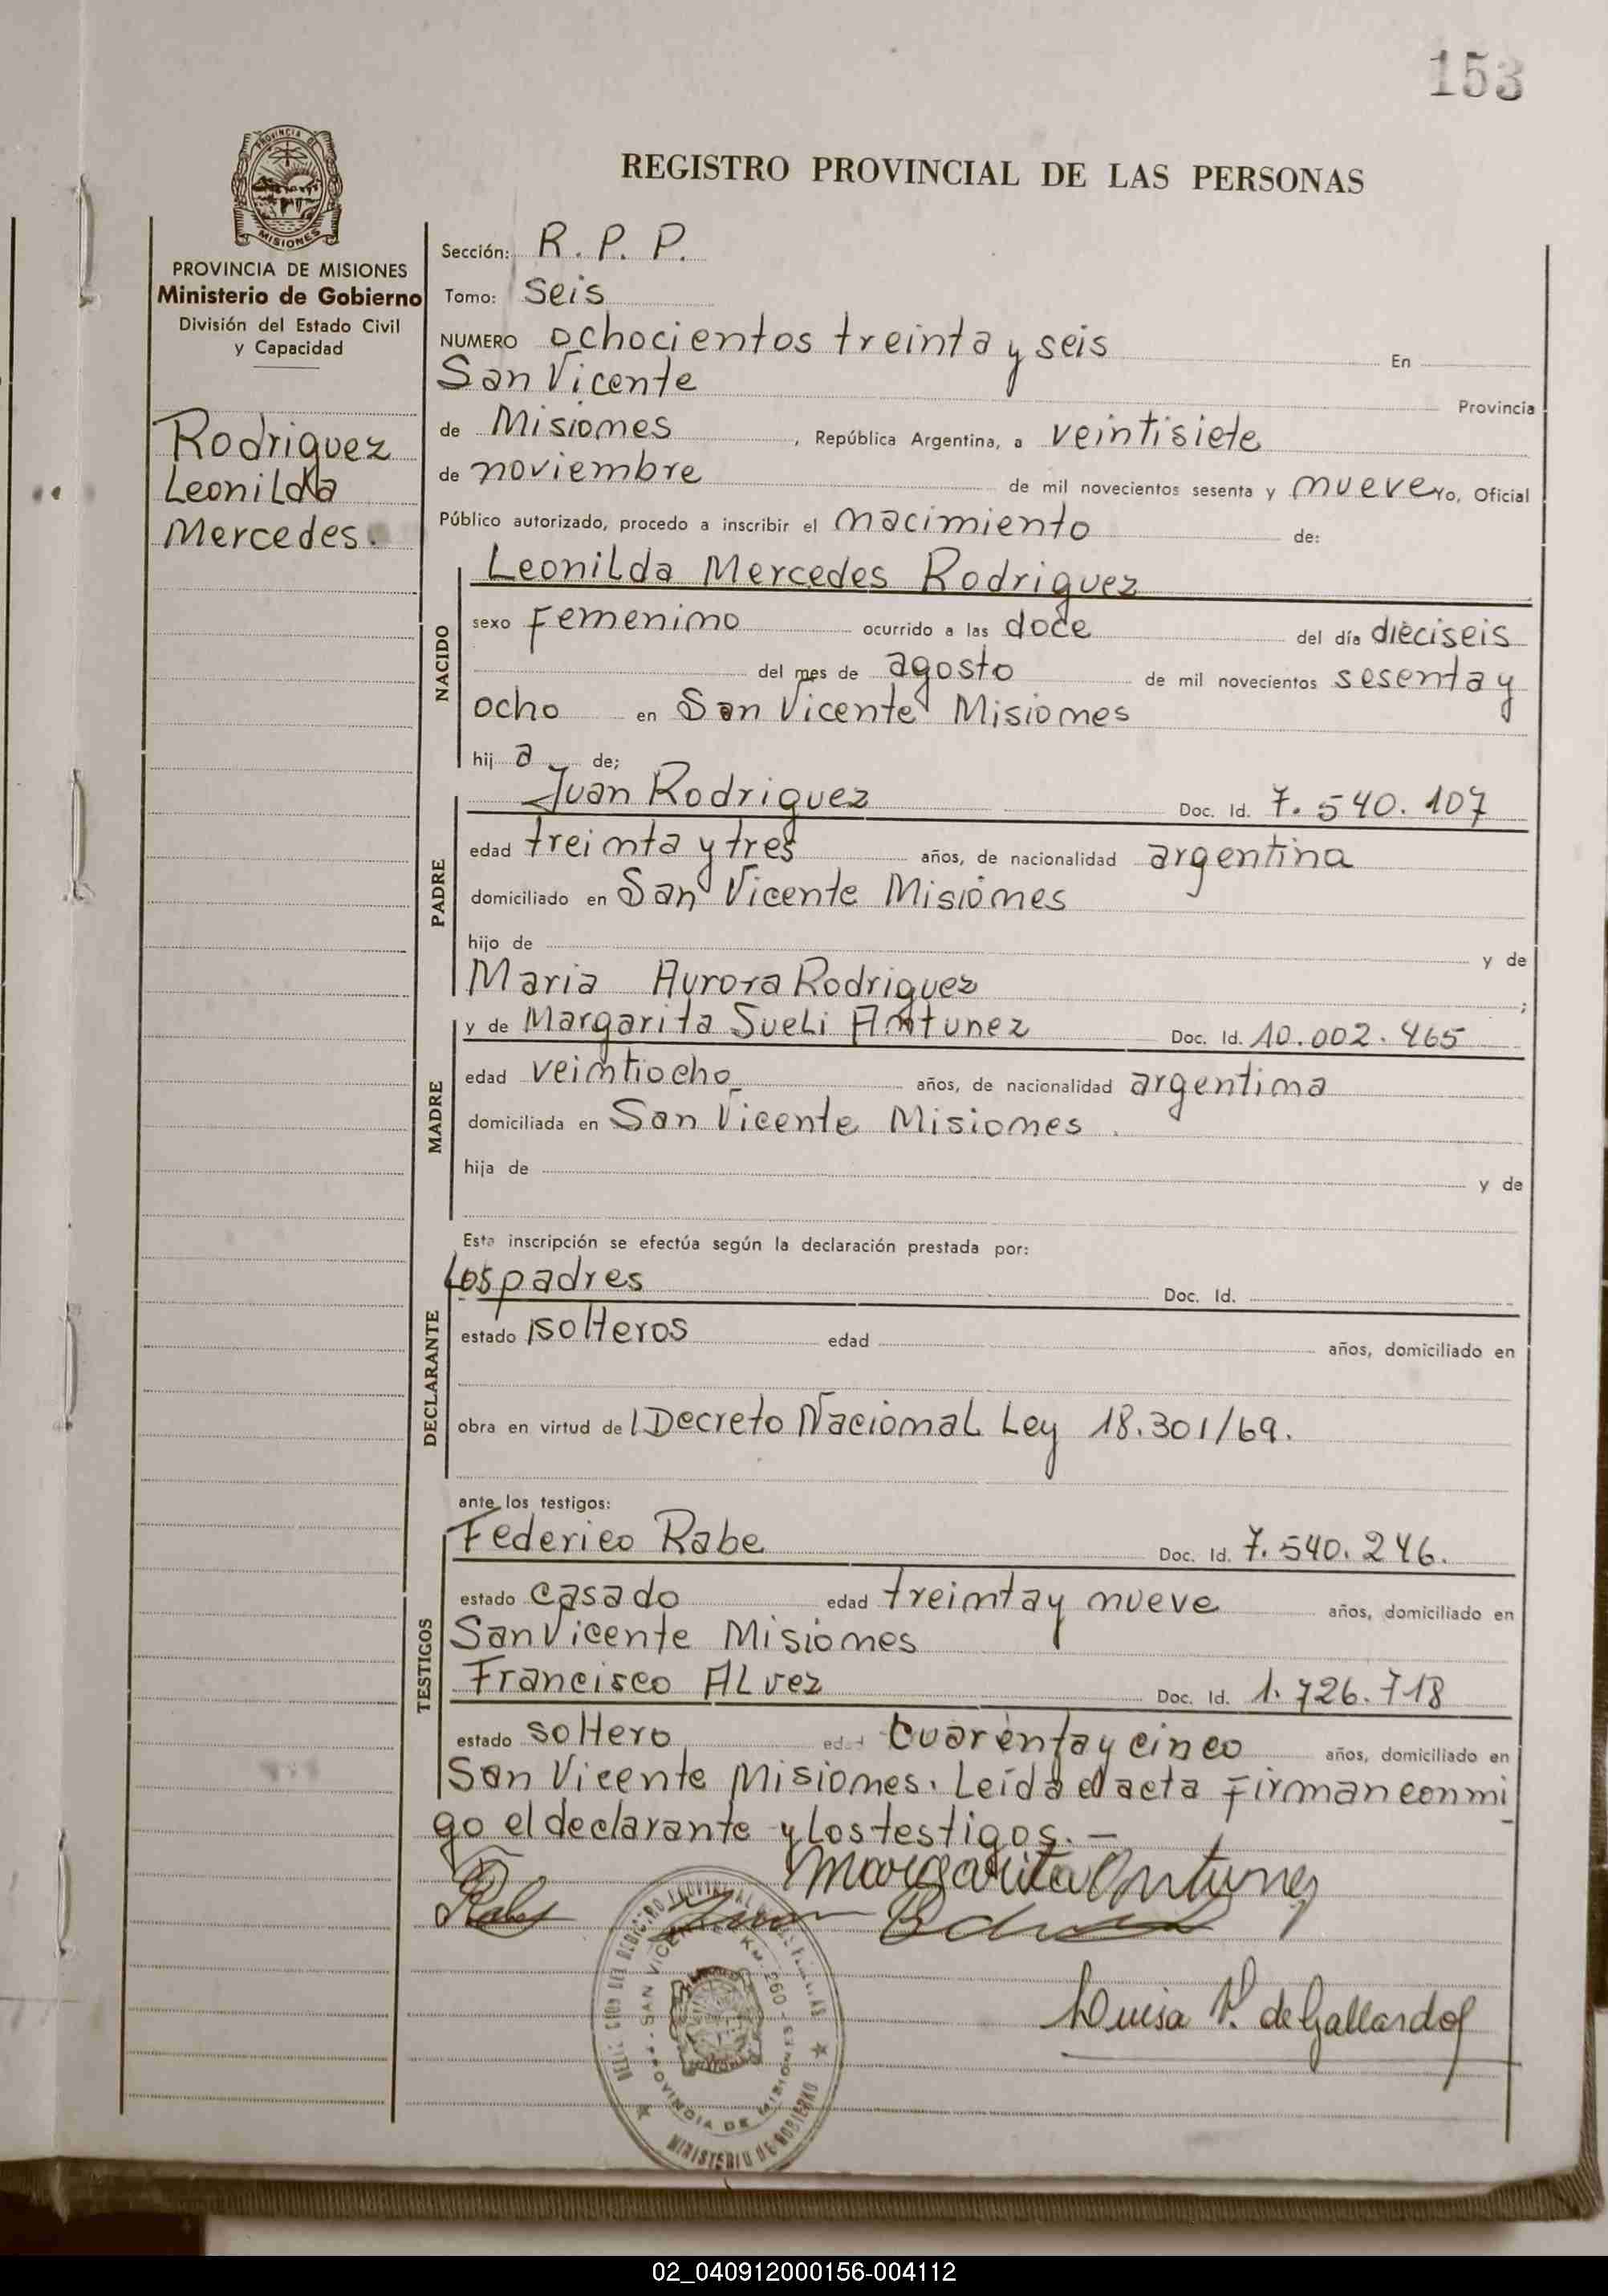 153
PROVINCIA DE
MISIONES
PROVINCIA DE MISIONES
Ministerio de Gobierno
División del Estado Civil
y Capacidad
Rodriguez
Leonilda
Mercedes.
REGISTRO PROVINCIAL DE LAS PERSONAS
Sección: R. P. P.
Tomo: Seis
NUMERO ochocientos treinta y seis En
San Vicente Provincia
de Misiones , República Argentina, a veintisiete
de noviembre de mil novecientos sesenta y nueve Yo, Oficial
Público autorizado, procedo a inscribir el nacimiento de:
NACIDO
Leonilda Mercedes Rodriguez
sexo Femenino ocurrido a las doce del día dieciseis
del mes de agosto de mil novecientos sesenta y
ocho en San Vicente Misiones
hij a de;
PADRE
Juan Rodriguez Doc. Id. 7.540.107
edad treinta y tres años, de nacionalidad argentina
domiciliado en San Vicente Misiones
hijo de y de
Maria Aurora Rodriguez ;
MADRE
y de Margarita Sueli Antunez Doc. Id. 10.002.465
edad veintiocho años, de nacionalidad argentina
domiciliada en San Vicente Misiones.
hija de y de
Esta inscripción se efectúa según la declaración prestada por:
DECLARANTE
Los padres Doc. Id.
estado solteros edad años, domiciliado en
obra en virtud de Decreto Nacional Ley 18.301/69.
ante los testigos:
TESTIGOS
Federico Rabe Doc. Id. 7.540.246.
estado casado edad treinta y nueve años, domiciliado en
San Vicente Misiones
Francisco ALvez Doc. Id. 1.726.718
estado soltero edad cuarenta y cinco años, domiciliado en
San Vicente Misiones. Leída el acta Firman conmi
go el declarante y Los testigos.-
Margarita Antunez
Rabe
Luisa V. de Gallardo
SAN VICENTE KM. 260 - PROVINCIA DE MISIONES
MINISTERIO DE GOBIERNO
02_040912000156-004112